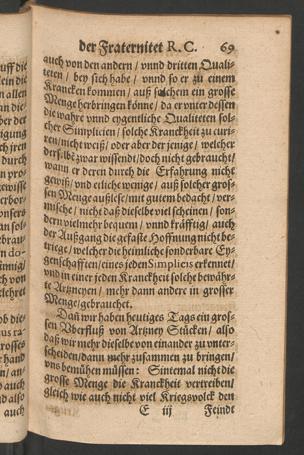 der Fraternitet R. C. 69
auch von den andern / vnnd dritten Quali-
teten / bey sich habe / vnnd so er zu einem
Krancken kommen / auß solchem ein grosse
Menge herbringen könne / da er vnter dessen
die wahre vnnd eygentliche Qualiteten sol-
cher Simplicien / solche Kranckheit zu curi-
ren / nicht weiß / oder aber der jenige / welcher
derselbe zwar wissendt / doch nicht gebraucht /
wann er deren durch die Erfahrung nicht
gewiß / vnd etliche wenige / auß solcher gros-
sen Menge außlese / mit gutem bedacht / ver-
mische / nicht daß dieselbe viel scheinen / son-
dern vielmehr bequem / vnnd kräfftig / auch
der Außgang die gefaste Hoffnung nicht be-
triege / welcher die heimliche sonderbare Ey-
genschafften / eines jeden Simplicis erkennet /
vnd in einer jeden Kranckheit solche bewähr-
te Artzneyen / mehr dann andere in grosser
Menge / gebrauchet.
Dañ wir haben heutiges Tags ein gros-
sen Vberfluß von Artzney Stücken / also
daß wir mehr dieselbe von einander zu vnter-
scheiden / dann mehr zusammen zu bringen /
vns bemühen müssen: Sintemal nicht die
grosse Menge die Kranckheit vertreiben /
gleich wie auch nicht viel Kriegsvolck den
E iij Feindt